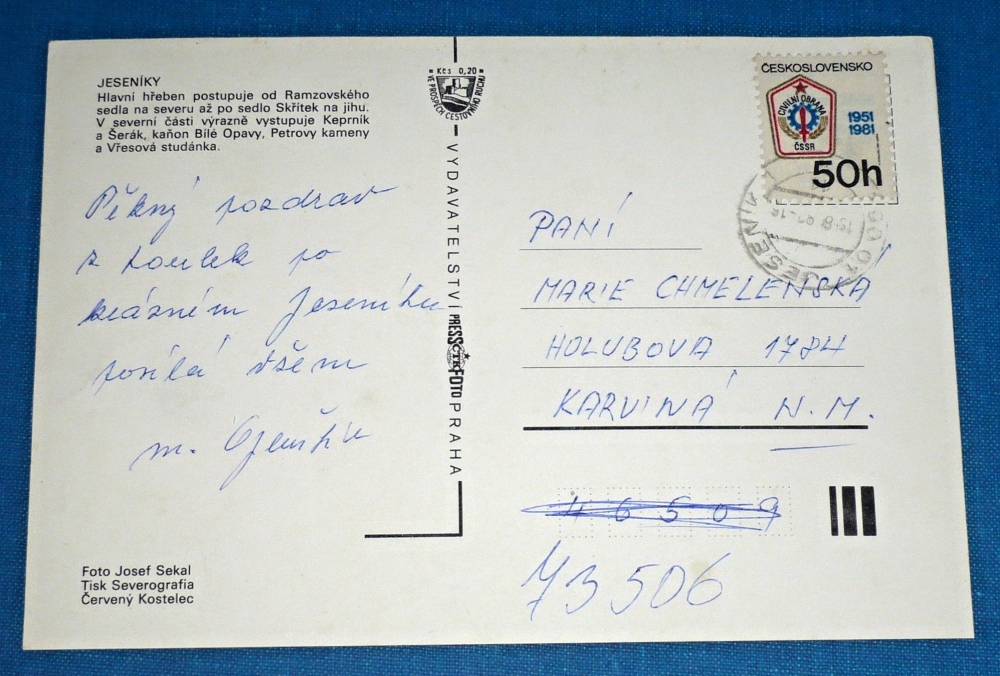 JESENÍKY
Hlavní hřeben postupuje od Ramzovského
sedla na severu až po sedlo Skřítek na jihu.
V severní části výrazně vystupuje Keprník
a Šerák, kaňon Bílé Opavy, Petrovy kameny
a Vřesová studánka.
Pěkný pozdrav
z toulek po
krásném Jeseníku
posílá všem
m.
Foto Josef Sekal
Tisk Severografia
Červený Kostelec
Kčs 0,20
VE PROSPĚCH CESTOVNÍHO RUCHU
VYDAVATELSTVÍ PRESSFOTO PRAHA
ČTK
ČESKOSLOVENSKO
CIVILNÍ OBRANA
ČSSR
1951
1981
50h
JESENÍK
PANÍ
MARIE CHMELENSKÁ
HOLUBOVA 1784
KARVINÁ N.M.
46509
73506